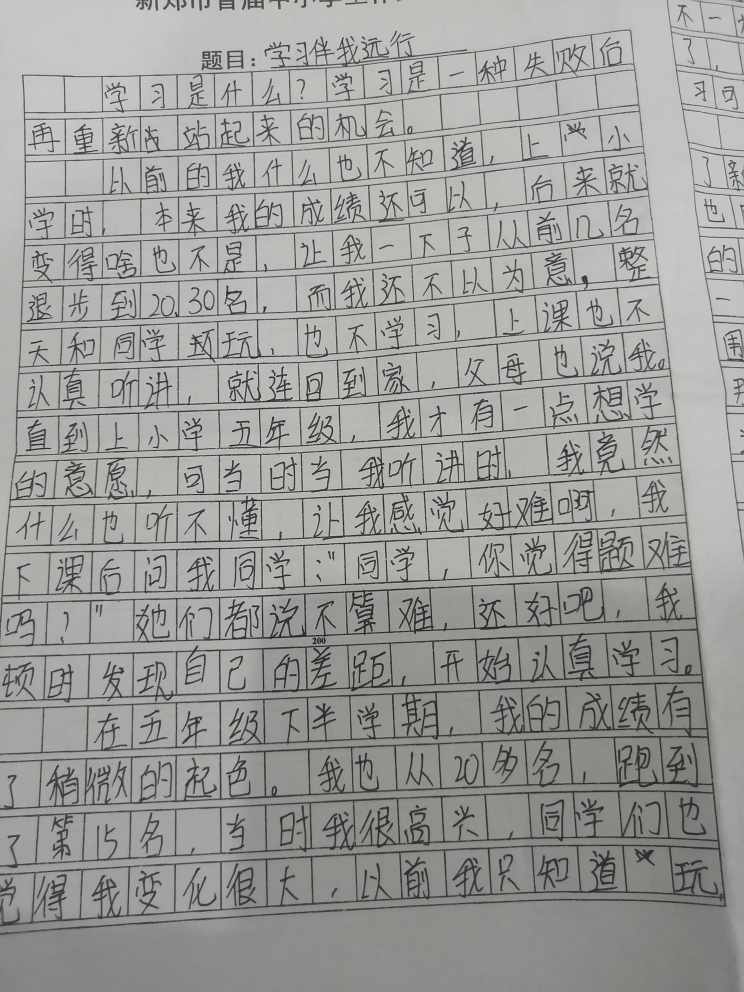 新郑市首届中小学生作
题目：学习伴我远行
学习是什么？学习是一种失败后
再重新战站起来的机会。
以前的我什么也不知道，上小
学时，本来我的成绩还可以，后来就
变得啥也不是，让我一下子从前几名
退步到20,30名，而我还不以为意，整
天和同学玩，也不学习，上课也不
认真听讲，就连回到家，父母也说我。
直到上小学五年级，我才有一点想学
的意愿，可当时当我听讲时，我竟然
什么也听不懂，让我感觉好难啊，我
下课后问我同学："同学，你觉得题难
吗？"她们都说不算难，还好吧，我
200
顿时发现自己的差距，开始认真学习。
在五年级下半学期，我的成绩有
了稍微的起色。我也从20多名，跑到
了第15名，当时我很高兴，同学们也
觉得我变化很大，以前我只知道玩，
不一
了，
习可
了新
也
的
一
围